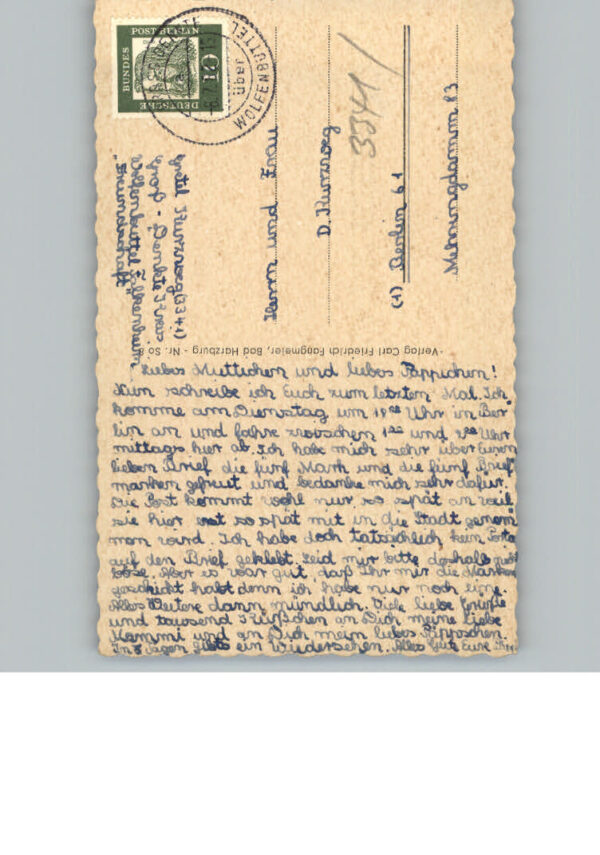 DEUTSCHE
BUNDES
POST BERLIN
10
über
WOLFENBÜTTEL
Herrn und Frau
D. Kunzweg
(1) Berlin 61
Mehringdamm 83
3341
Groß-Denkte Kreis
Wolfenbüttel
- Verlag Carl Friedrich Fangmeier, Bad Harzburg - Nr. So 8
Liebes Muttichen und liebes Pappichen!
Nun schreibe ich Euch zum letzten Mal. Ich
komme am Dienstag um 19 Uhr in Ber
lin an und fahre zwischen 1 und 2 Uhr
mittags hier ab. Ich habe mich sehr über Euren
lieben Brief die fünf Mark und die fünf Brief
marken gefreut und bedanke mich sehr dafür.
Die Post kommt wohl nur so spät an weil
sie hier erst so spät mit in die Stadt genom
men wird. Ich habe doch tatsächlich kein Porto
auf den Brief geklebt. Seid mir bitte deshalb nicht
böse. Aber es war gut, daß Ihr mir die Marken
geschickt habt denn ich habe nur noch eine.
Alles Weitere dann mündlich. Viele liebe Grüße
und tausend Küßchen an Dich meine liebe
Mammi und an Dich mein liebes Pappschen.
In 3 Tagen gibts ein Wiedersehen. Alles Gute Eure